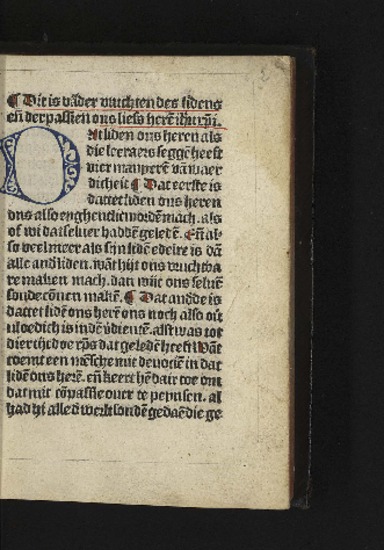 ¶ Dit is vāder vruchten des lidens
eñ der passien ons liefs herē ihū xpi.
At liden ons heren als
die leeraers seggē heeft
vier manyerē vā waer
dicheit ¶ Dat eerste is
dattet liden ons heren
ons also eyghentlic wordē mach. als
of wi dat seluer haddē geledē. Eñ al
so veel meer als sijn lidē edelre is dā
alle and' liden. wāt hijt ons vruchtba
re maken mach. dan wijt ons seluē
soudē cōnen makē. ¶ Dat anderde is
dattet lidē ons herē ons noch also ou
uloedich is indē v'dientē. als't was tot
dier tijt doe xps dat geledē heeft. Wāt
coemt een mēsche mit deuociē in dat
lidē ons herē. eñ keert hē dair toe om
dat mit cōpassie ouer te peynsen. al
had hi alle d' werlt sondē gedaē die ge